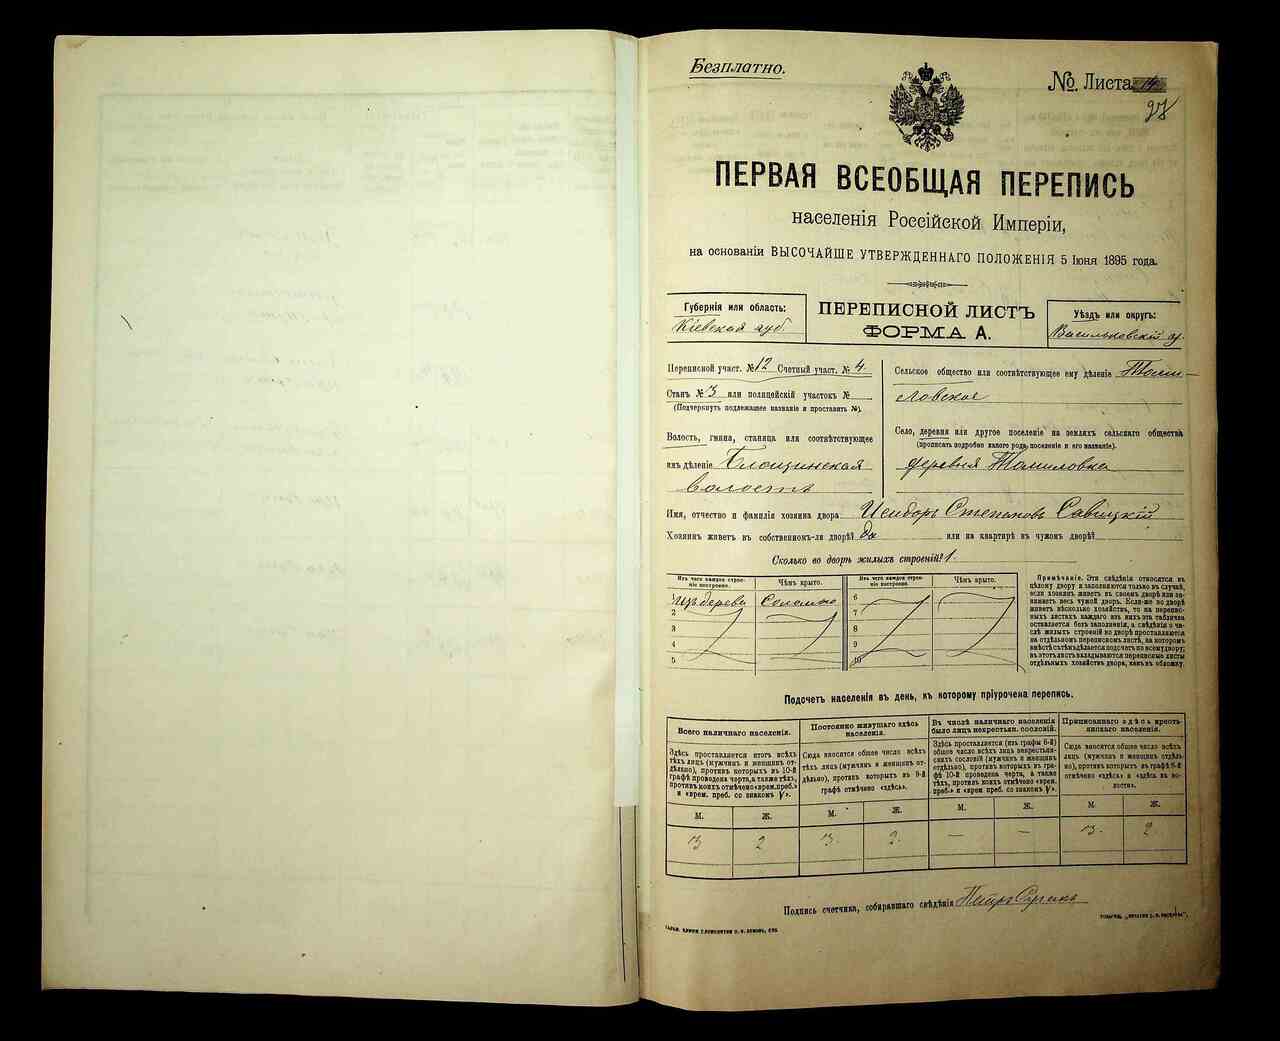 Безплатно.
№. Листа 14
97
ПЕРВАЯ ВСЕОБЩАЯ ПЕРЕПИСЬ
населенія Россійской Имперіи,
на основаніи ВЫСОЧАЙШЕ УТВЕРЖДЕННАГО ПОЛОЖЕНІЯ 5 Іюня 1895 года.
Губернія или область:
Кіевская губ.
ПЕРЕПИСНОЙ ЛИСТЪ
ФОРМА А.
Уѣздъ или округъ:
Васильковскій у.
Переписной участ. № 12 Счетный участ. № 4.
Станъ № 3 или полицейскій участокъ №
(Подчеркнуть подлежащее названіе и проставить №).
Волость, гмина, станица или соотвѣтствующее
имъ дѣленіе Блощинская
волость
Сельское общество или соотвѣтствующее ему дѣленіе Томи-
ловское
Село, деревня или другое поселеніе на земляхъ сельскаго общества
(прописать подробно какого рода поселеніе и его названіе).
деревня Томиловка
Имя, отчество и фамилія хозяина двора Исидоръ Степановъ Савицкій
Хозяинъ живетъ въ собственномъ-ли дворѣ? да или на квартирѣ въ чужомъ дворѣ?
Сколько во дворѣ жилыхъ строеній? 1.
Изъ чего каждое строеніе построено.
Чѣмъ крыто.
Изъ чего каждое строеніе построено.
Чѣмъ крыто.
1 Изъ дерева Соломою
2
3
4
5
6
7
8
9
10
Примѣчаніе. Эти свѣдѣнія относятся къ
цѣлому двору и заполняются только въ случаѣ,
если хозяинъ живетъ въ своемъ дворѣ или за-
нимаетъ весь чужой дворъ. Если-же во дворѣ
живетъ нѣсколько хозяйствъ, то на перепис-
ныхъ листахъ каждаго изъ нихъ эта табличка
оставляется безъ заполненія, а свѣдѣнія о чи-
слѣ жилыхъ строеній во дворѣ проставляются
на отдѣльномъ переписномъ листѣ, на которомъ
вмѣстѣ съ тѣмъ дѣлается подсчетъ по всему двору;
въ этотъ листъ вкладываются переписные листы
отдѣльныхъ хозяйствъ двора, какъ въ обложку.
Подсчетъ населенія въ день, къ которому пріурочена перепись.
Всего наличнаго населенія.
Здѣсь проставляется итогъ всѣхъ
тѣхъ лицъ (мужчинъ и женщинъ от-
дѣльно), противъ которыхъ въ 10-й
графѣ проведена черта, а также тѣхъ,
противъ коихъ отмѣчено «врем. преб.»
и «врем. преб. со знакомъ V».
Постоянно живущаго здѣсь
населенія.
Сюда вносится общее число всѣхъ
тѣхъ лицъ (мужчинъ и женщинъ от-
дѣльно), противъ которыхъ въ 9-й
графѣ отмѣчено «здѣсь».
Въ числѣ наличнаго населенія
было лицъ некрестьян. сословій.
Здѣсь проставляется (изъ графы 6-й)
общее число всѣхъ лицъ некрестьян-
скихъ сословій (мужчинъ и женщинъ
отдѣльно), противъ которыхъ въ гра-
фѣ 10-й проведена черта, а также
тѣхъ, противъ коихъ отмѣчено «врем.
преб.» и «врем. преб. со знакомъ V».
Приписаннаго здѣсь кресть-
янскаго населенія.
Сюда вносится общее число всѣхъ
лицъ (мужчинъ и женщинъ отдѣль-
но), противъ которыхъ въ графѣ 8-й
отмѣчено «здѣсь» и «здѣсь въ во-
лости».
М. Ж. М. Ж. М. Ж. М. Ж.
3 2 3. 2. — — 3. 2
Подпись счетчика, собиравшаго свѣдѣнія Петръ